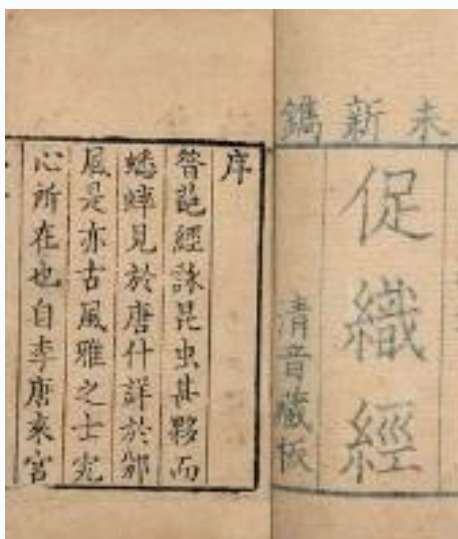 未新鐫
促織經
清音藏板
序
葩經詠昆虫甚夥而
蟋蟀見於唐什詳於邠
風是亦古風雅之士究
心所在也自李唐来宮